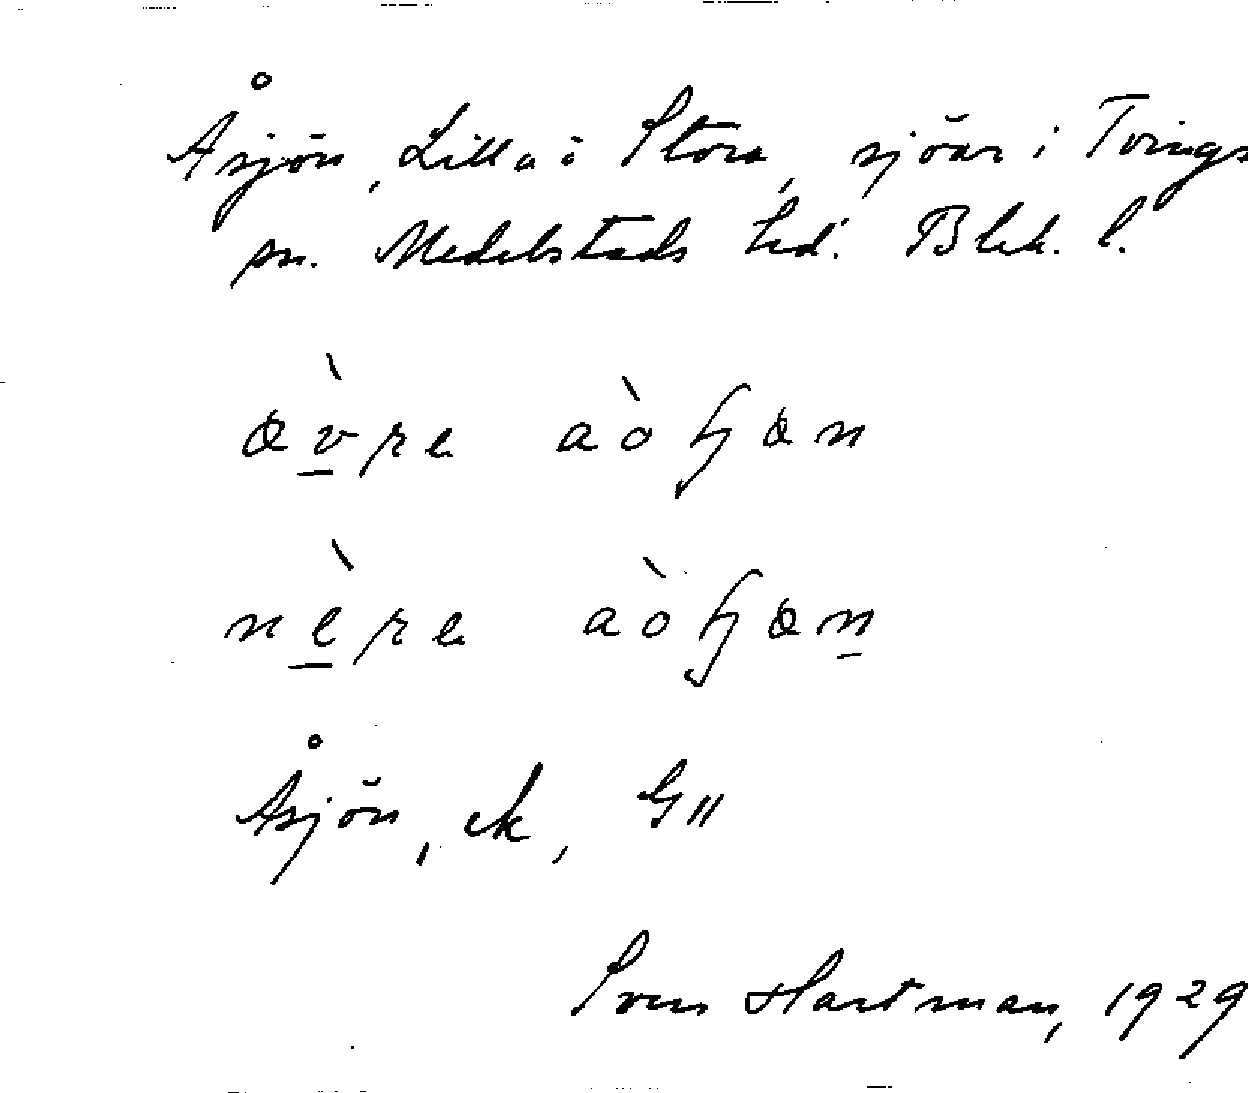 Åsjön, Lilla o Stora, sjöar i Tvings
sn. Medelstads hd. Blek. l.
øv̲̀re aòɧøn
nè̲re aòɧøn̲
Åsjön, ek, G11
Sven Hartman, 1929